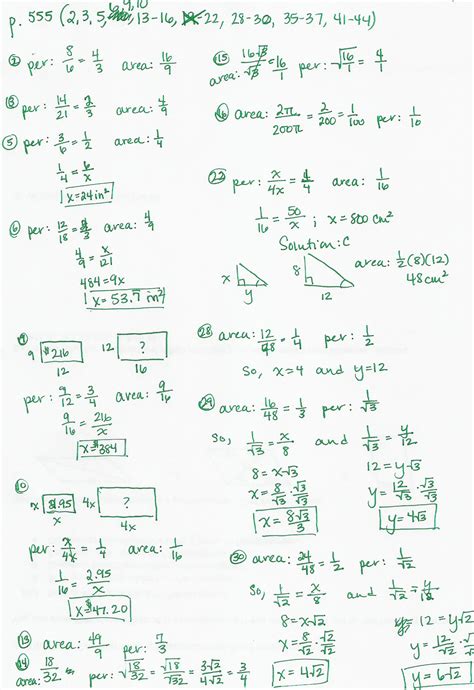 p. 555 (2,3,5, 6,9,10 13-16, 22, 28-30, 35-37, 41-44)
② per: 8/6 = 4/3 area: 16/9
③ per: 14/21 = 2/3 area: 4/9
⑤ per: 3/6 = 1/2 area: 1/4
1/4 = 6/x
x = 24 in²
⑥ per: 12/18 = 2/3 area: 4/9
4/9 = x/121
484 = 9x
x = 53.7 in²
⑨ 9 $216 12 ?
12 16
per: 9/12 = 3/4 area: 9/16
9/16 = 216/x
x = $384
⑩ x $2.95 4x ?
x 4x
per: x/4x = 1/4 area: 1/16
1/16 = 2.95/x
x = $47.20
⑬ area: 49/9 per: 7/3
⑭ area: 18/32 per: √18/√32 = √18/√32 = 3√2/4√2 = 3/4
⑮ area: 16√3/√3 = 16/1 per: √16/1 = 4/1
⑯ area: 2π/200π = 2/200 = 1/100 per: 1/10
㉒ per: x/4x = 1/4 area: 1/16
1/16 = 50/x ; x = 800 cm²
Solution: C
x y 8 12 area: 1/2(8)(12)
48 cm²
㉘ area: 12/48 = 1/4 per: 1/2
So, x=4 and y=12
㉙ area: 16/48 = 1/3 per: 1/√3
So, 1/√3 = x/8 and 1/√3 = y/12
8 = x√3 12 = y√3
x = 8/√3 · √3/√3 y = 12/√3 · √3/√3
x = 8√3/3 y = 4√3
㉚ area: 24/48 = 1/2 per: 1/√2
So, 1/√2 = x/8 and 1/√2 = y/12
8 = x√2 12 = y√2
x = 8/√2 · √2/√2 y = 12/√2 ·
x = 4√2 y = 6√2